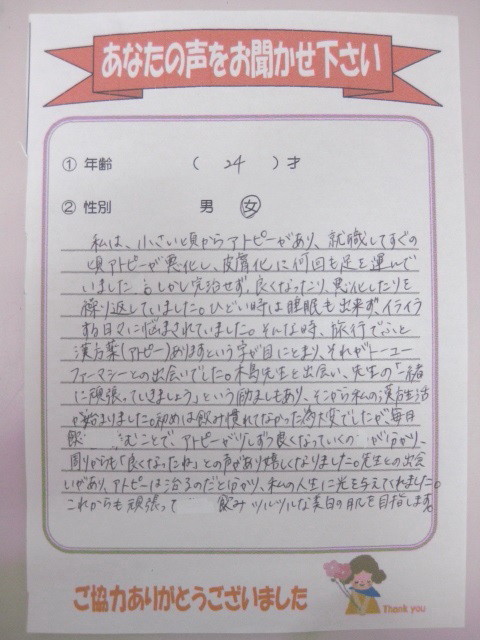 あなたの声をお聞かせ下さい
① 年齢 ( 24 ) 才
② 性別 男 女
私は、小さい頃からアトピーがあり、就職してすぐの
頃アトピーが悪化し、皮膚化に何回も足を運んで
いました。しかし完治せず、良くなったり、悪化したりを
繰り返していました。ひどい時は睡眠も出来ず、イライラ
する日々に悩まされていました。そんな時、旅行でふと
漢方薬(アトピー)ありますという字が目にとまり、それがトーユー
ファーマシーとの出会いでした。木島先生と出会い、先生の「一緒
に頑張っていきましょう」という励ましもあり、そこから私の漢方生活
が始まりました。初めは飲み慣れてなかった為大変でしたが、毎日
むことで、アトピーが少しずつ良くなっていくの が分かり、
周りからも「良くなったね」との声があり嬉しくなりました。先生との出会
いがあり、アトピーは治るのだと分かり、私の人生に光を与えてくれました。
これからも頑張って 飲みツルツルな美白の肌を目指します。
ご協力ありがとうございました
Thank you